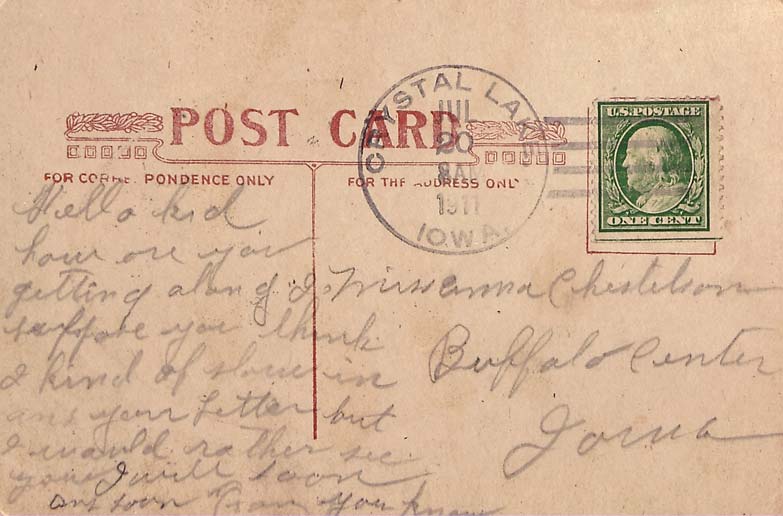 POST CARD
CRYSTAL LAKE
JUL
20
8 AM
1911
IOWA.
U.S. POSTAGE
ONE CENT
FOR CORRESPONDENCE ONLY
FOR THE ADDRESS ONLY
Hello kid
how are you
getting along I
suppose you think
I kind of slow in
ans your letter but
I would rather see
you I will soon
ans soon from you know
Miss Anna Chestelson
Buffalo Center
Iowa